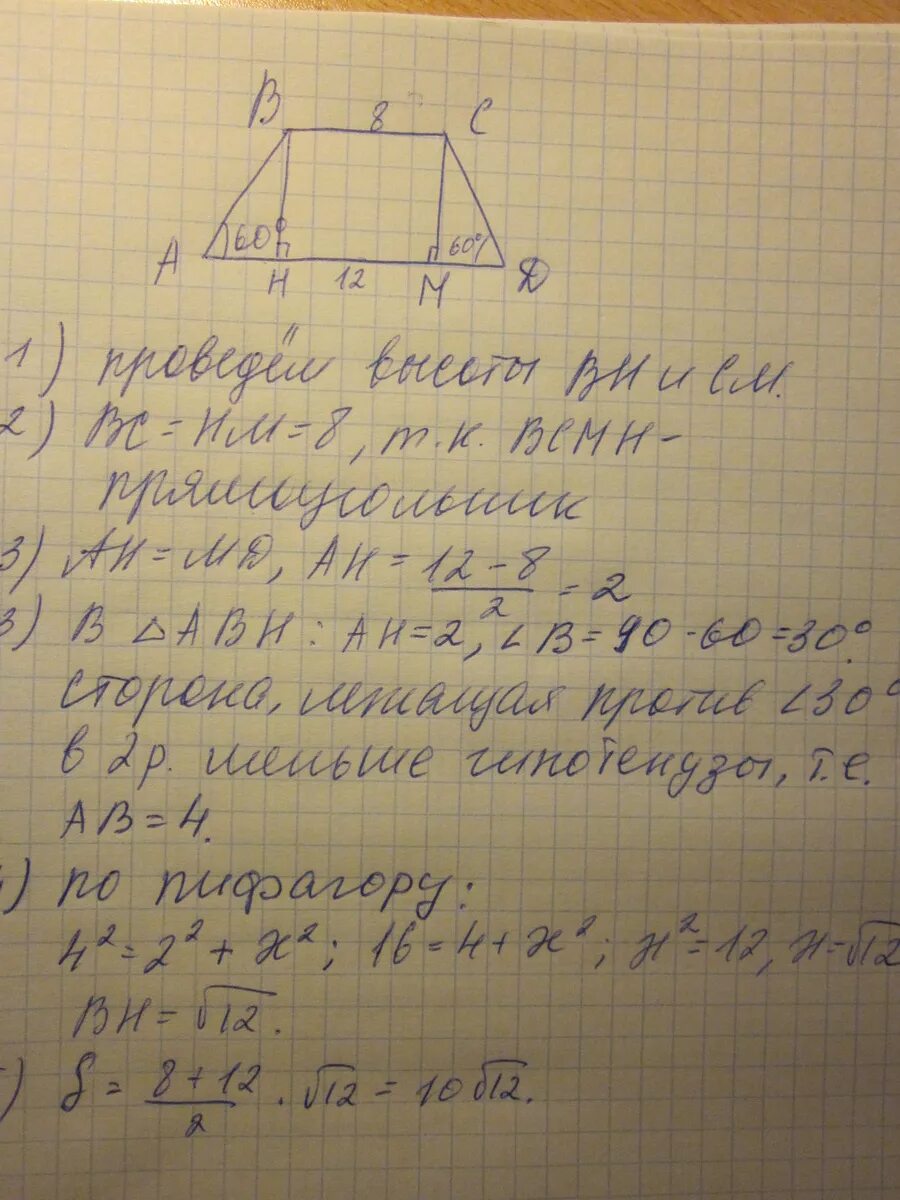 B 8 C
A 60° 60° D
H 12 M
1) проведём высоты BH и CM.
2) BC = HM = 8, т.к. BCMH -
прямоугольник
3) AH = MD, AH = \frac{12-8}{2} = 2
3) В △ABH: AH=2, ∠B = 90-60=30°.
сторона, лежащая против ∠30°
в 2р. меньше гипотенузы, т.е.
AB = 4.
) по пифагору:
4² = 2² + x²; 16 = 4 + x²; x² = 12, x = √12
BH = √12.
) S = \frac{8+12}{2} · √12 = 10√12.